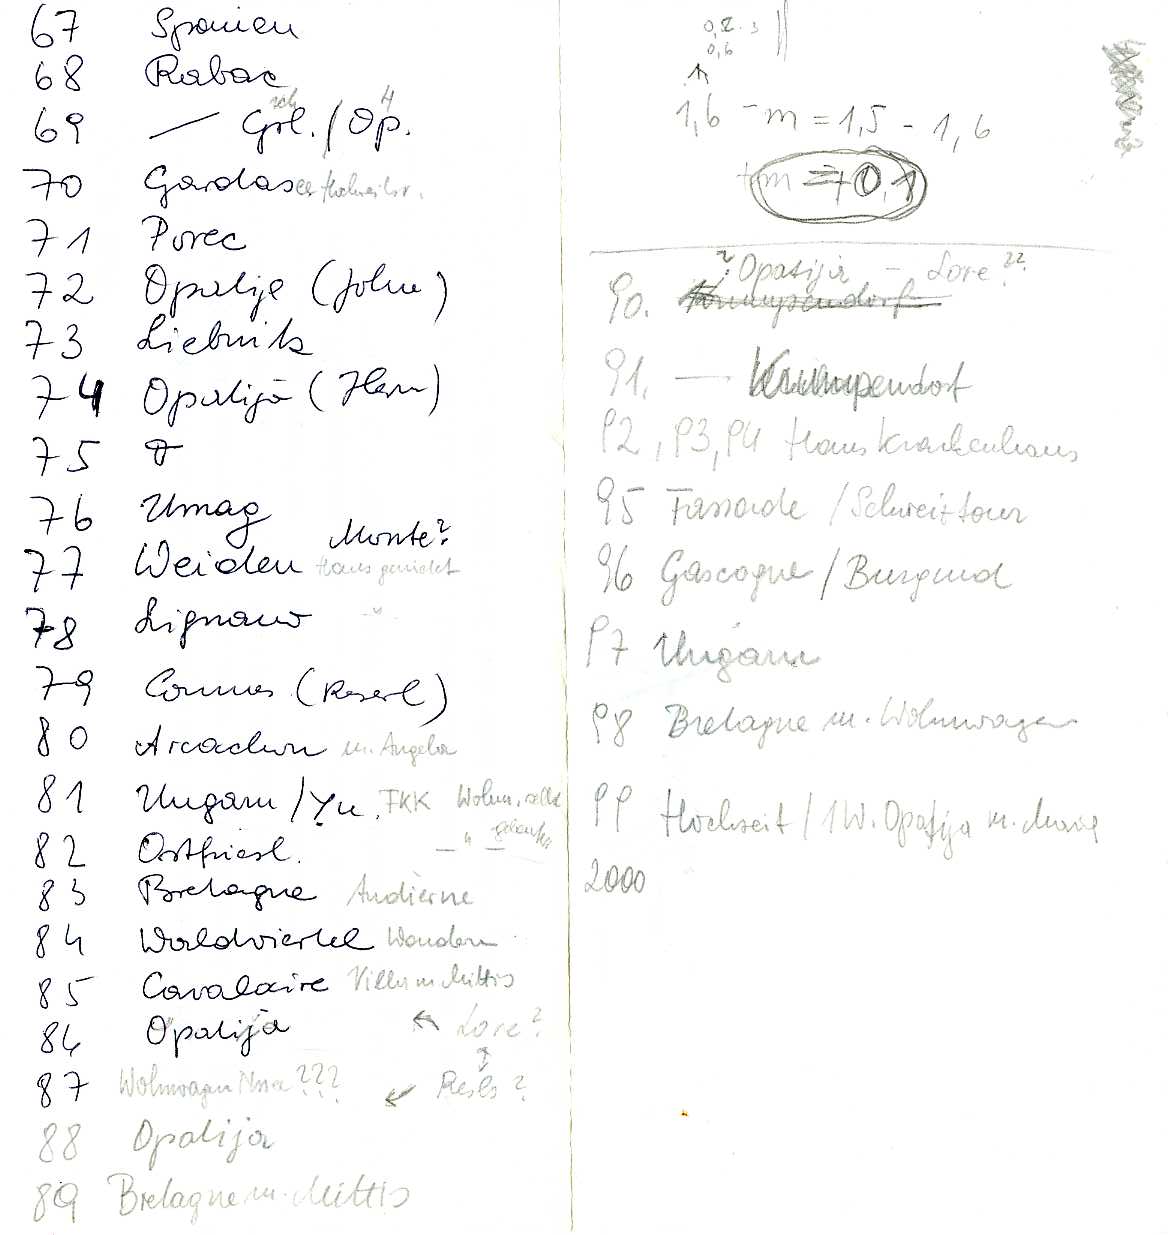 67 Spanien
68 Rabac
69 — Grl. / Op.
70 Gardasee
71 Porec
72 Opatija (John)
73 Liebnitz
74 Opatija (Herm)
75
76 Umag
Monte?
77 Weiden Haus gemietet
78 Lignano - " -
79 Cannes (Reserl)
80 Arcachon m. Angela
81 Ungarn / Yu. FKK Wohnw. selbst
gelenkt
82 Ostfriesl. — " —
83 Bretagne Audierne
84 Waldviertel Wandern
85 Cavalaire Villa m Mittis
86 Opatija ← Lore?
87 Wohnwagen ??? ↙ Resls?
88 Opatija
89 Bretagne m. Mittis
0,2 · 3
0,6
1,6 - m = 1,5 - 1,6
+m = +0,1
? Opatija - Lore??
90. Krumpendorf
91. — Krumpendorf
92, 93, 94 Haus Krankenhaus
95 Fassade / Schweiztour
96 Gascogne / Burgund
97 Ungarn
98 Bretagne m. Wohnwagen
99 Hochzeit / 1W. Opatija m. Maria
2000